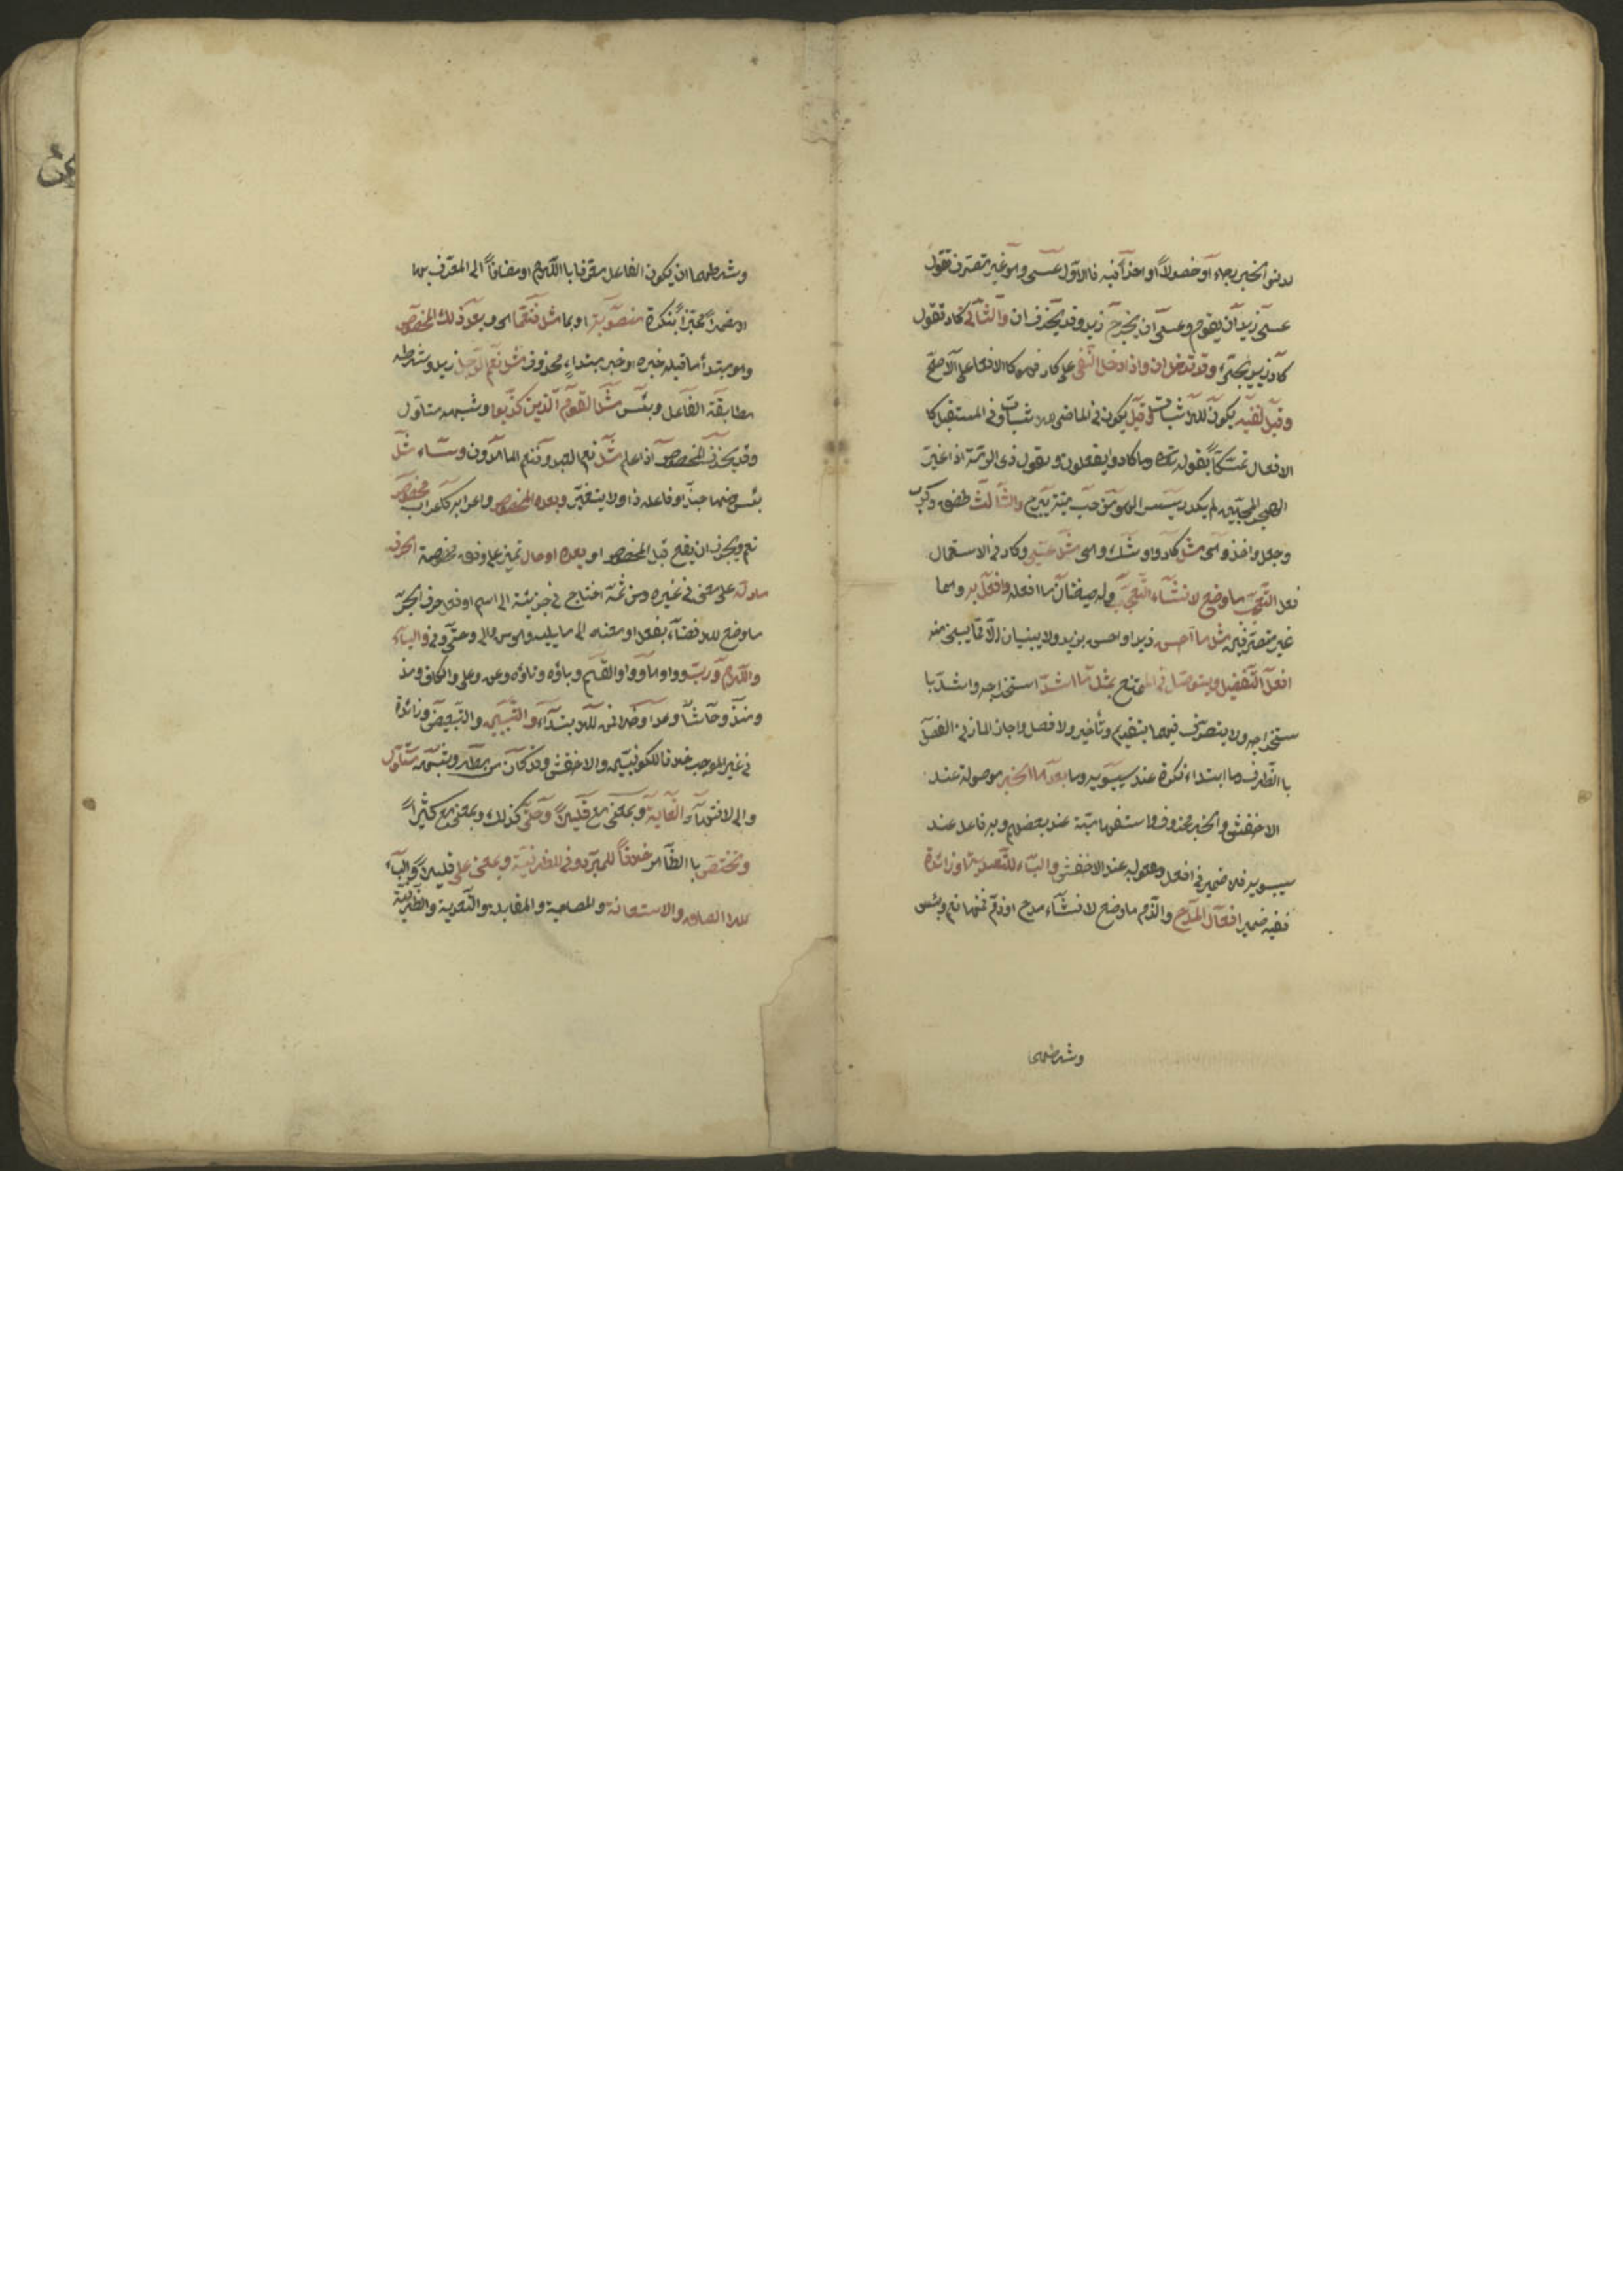 لدنو الخبر رجاء أو حصولاً او اخذاً فيه فالاول عسى وهو غير متصرف تقول
عسى زيد أن يقوم وعسى أن يخرج زيد وقد يحذف ان والثانى كاد تقول
كاد زيد يجىء وقد تدخل ان واذا دخل النفى على كاد فهو كالافعال على الاصح
وقيل لنفيه يكون للاثبات وقيل يكون فى الماضى للاثبات وفى المستقبل كا
لافعال تمسكاً بقوله تعالى وما كادوا يفعلون وبقول ذى الرمة اذا غير
الهجر المحبين لم يكد رسيس الهوى من حب مية يبرح والثالث طفق وكرب
وجعل واخذ وهى مثل كاد واوشك وهى مثل عسى وكاد فى الاستعمال
فعل التعجب ما وضع لانشاء التعجب وله صيغتان ما افعله وافعل به وهما
غير متصرفين مثل ما احسن زيدا واحسن بزيد ولا يبنيان الا مما يبنى منه
افعل التفضيل ويتوصل فى الممتنع بمثل ما اشد استخراجه واشدد با
ستخراجه ولا يتصرف فيهما بتقديم وتأخير ولا فصل واجاز المازنى الفصل
با الظرف وما ابتداء نكرة عند سيبويه وما بعدها الخبر موصولة عند
الاخفش والخبر محذوف واستفهامية عند بعضهم وبه فاعل عند
سيبويه فلا ضمير فى افعل ومفعول به عند الاخفش والباء للتعدية او زائدة
ففيه ضمير افعال المدح والذم ما وضع لانشاء مدح او ذم فمنها نعم وبئس
وشرطهما
وشرطهما ان يكون الفاعل معرفا با اللام او مضافاً الى المعرف بها
او مضمراً مميزاً بنكرة منصوبة او بما مثل فنعما هى وبعد ذلك المخصوص
وهو مبتدأ ما قبله خبره او خبر مبتداء محذوف مثل نعم الرجل زيد وشرطه
مطابقة الفاعل وبئس مثل القوم الذين كذبوا وشبهه متاول
وقد يحذف المخصوص اذا علم مثل نعم العبد وفنعم الماهدون وساء مثل
بئس ومنها حبذا وفاعله ذا ولا يتغير وبعده المخصوص واعرابه كاعراب مخصوص
نعم ويجوز ان يقع قبل المخصوص او بعده او حال تميز على وفق مخصوصة الحرف
ما دل على معنى فى غيره ومن ثمة احتاج فى جزئية الى اسم او فعل حرف الجر
ما وضع للافضاء بفعل او معناه الى ما يليه وهو من والى وحتى وفى والباء
واللام ورب وواوها وواو القسم وباؤه وتاؤه وعن وعلى والكاف ومذ
ومنذ وحاشا وعدا وخلا فمن للابتداء والتبيين والتبعيض وزائدة
فى غير الموجب خلافا للكوفيين والاخفش وقد كان من مطر وشبهه متاول
والى لانتهاء الغاية وبمعنى مع قليلاً وحتى كذلك وبمعنى مع كثيراً
وتختص با الظاهر خلافاً للمبرد وفى للظرفية وبمعنى على قليلاً والباء
للالصاق والاستعانة والمصاحبة والمقابلة والتعدية والظرفية